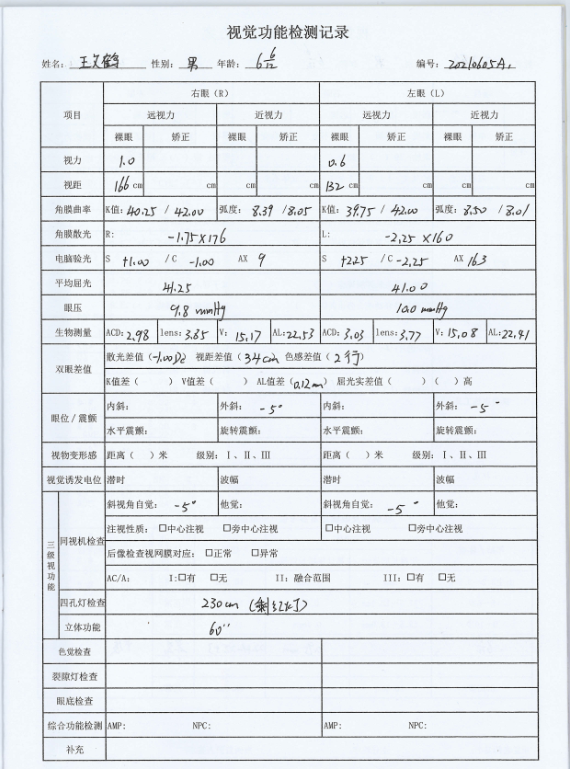 视觉功能检测记录
姓名: 王 鹤 性别: 男 年龄: 6 6/12 编号: 20210605A1
项目 右眼（R） 左眼（L）
远视力 近视力 远视力 近视力
裸眼 矫正 裸眼 矫正 裸眼 矫正 裸眼 矫正
视力 1.0 0.6
视距 166 cm cm cm cm 132 cm cm cm cm
角膜曲率 K值: 40.25 / 42.00 弧度: 8.39 / 8.05 K值: 39.75 / 42.00 弧度: 8.50 / 8.01
角膜散光 R: -1.75×176 L: -2.25 ×160
电脑验光 S +1.00 / C -1.00 AX 9 S +2.25 / C -2.25 AX 163
平均屈光 41.25 41.00
眼压 9.8 mmHg 10.0 mmHg
生物测量 ACD: 2.98 lens: 3.85 V: 15.17 AL: 22.53 ACD: 3.03 lens: 3.77 V: 15.08 AL: 22.41
双眼差值 散光差值（-1.00Dc 视距差值（34cm 色感差值（2行）
K值差（ ） V值差（ ） AL值差（0.12mm） 屈光实差值（ ）（ ）高
眼位/震颤 内斜: 外斜: -5° 内斜: 外斜: -5°
水平震颤: 旋转震颤: 水平震颤: 旋转震颤:
视物变形感 距离（ ）米 级别: I、II、III 距离（ ）米 级别: I、II、III
视觉诱发电位 潜时 波幅 潜时 波幅
三级视功能 同视机检查 斜视角自觉: -5° 他觉: 斜视角自觉: -5° 他觉:
注视性质: □中心注视 □旁中心注视 □中心注视 □旁中心注视
后像检查视网膜对应: □正常 □异常
AC/A: I:□有 □无 II: 融合范围 III: □有 □无
四孔灯检查 230cm (剩红灯)
立体功能 60''
色觉检查
裂隙灯检查
眼底检查
综合功能检测 AMP: NPC: AMP: NPC:
补充